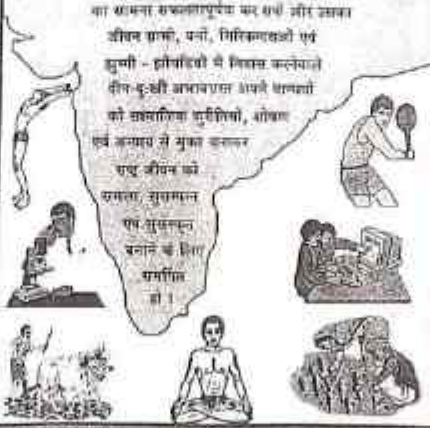 का सामना सफलतापूर्वक कर सके और उसका
जीवन ग्रामों, वनों, गिरिकन्दराओं एवं
झुग्गी - झोपड़ियों में निवास करनेवाले
दीन-दुःखी अभावग्रस्त अपने बान्धवों
को सामाजिक कुरीतियों, शोषण
एवं अन्याय से मुक्त कराकर
राष्ट्र जीवन को
समरस, सुसम्पन्न
एवं सुसंस्कृत
बनाने के लिए
समर्पित
हो ।